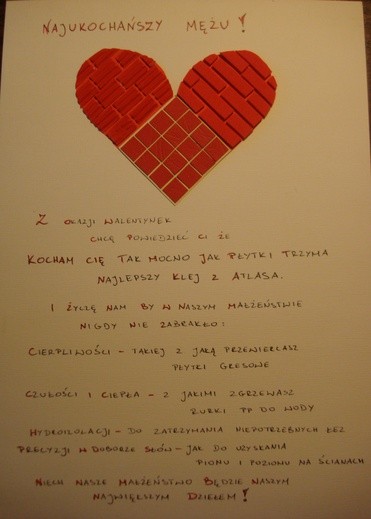 NAJUKOCHAŃSZY MĘŻU !
Z OKAZJI WALENTYNEK
CHCĘ POWIEDZIEĆ CI ŻE
KOCHAM CIĘ TAK MOCNO JAK PŁYTKI TRZYMA
NAJLEPSZY KLEJ Z ATLASA.
I ŻYCZĘ NAM BY W NASZYM MAŁŻEŃSTWIE
NIGDY NIE ZABRAKŁO:
CIERPLIWOŚCI - TAKIEJ Z JAKĄ PRZEWIERCASZ
PŁYTKI GRESOWE
CZUŁOŚCI I CIEPŁA - Z JAKIMI ZGRZEWASZ
RURKI PP DO WODY
HYDROIZOLACJI - DO ZATRZYMANIA NIEPOTRZEBNYCH ŁEZ
PRECYZJI W DOBORZE SŁÓW - JAK DO UZYSKANIA
PIONU I POZIOMU NA ŚCIANACH
NIECH NASZE MAŁŻEŃSTWO BĘDZIE NASZYM
NAJWIĘKSZYM DZIEŁEM !